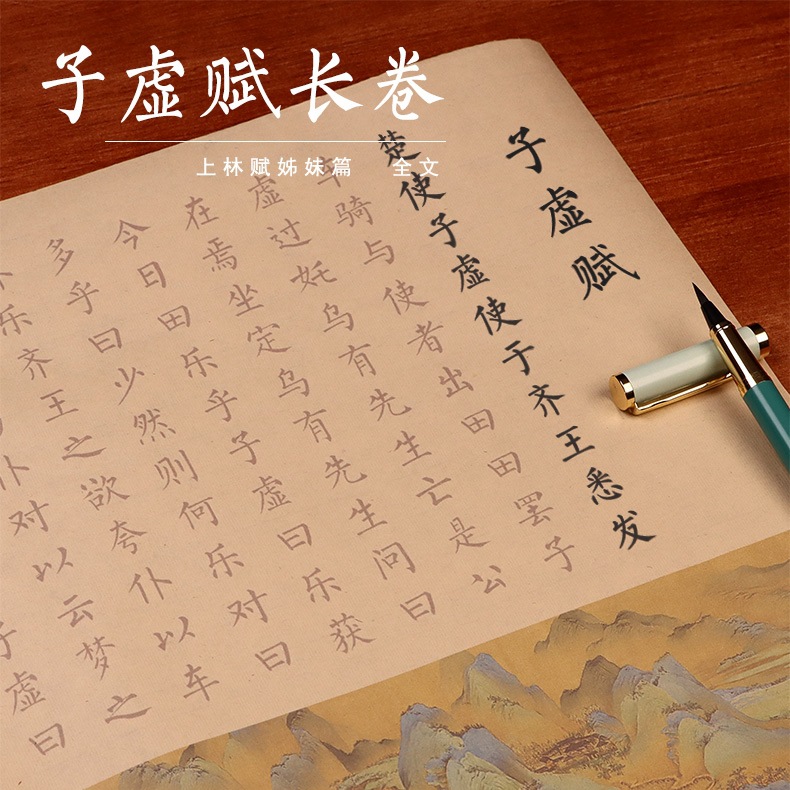 子虚赋长卷
上林赋姊妹篇 全文
子虚赋
楚使子虚使于齐王悉发
车骑与使者出田田罢子
虚过奼乌有先生亡是公
在焉坐定乌有先生问曰
今日田乐乎子虚曰乐获
多乎曰少然则何乐对曰
乐齐王之欲夸仆以车
仆对以云梦之
虚曰